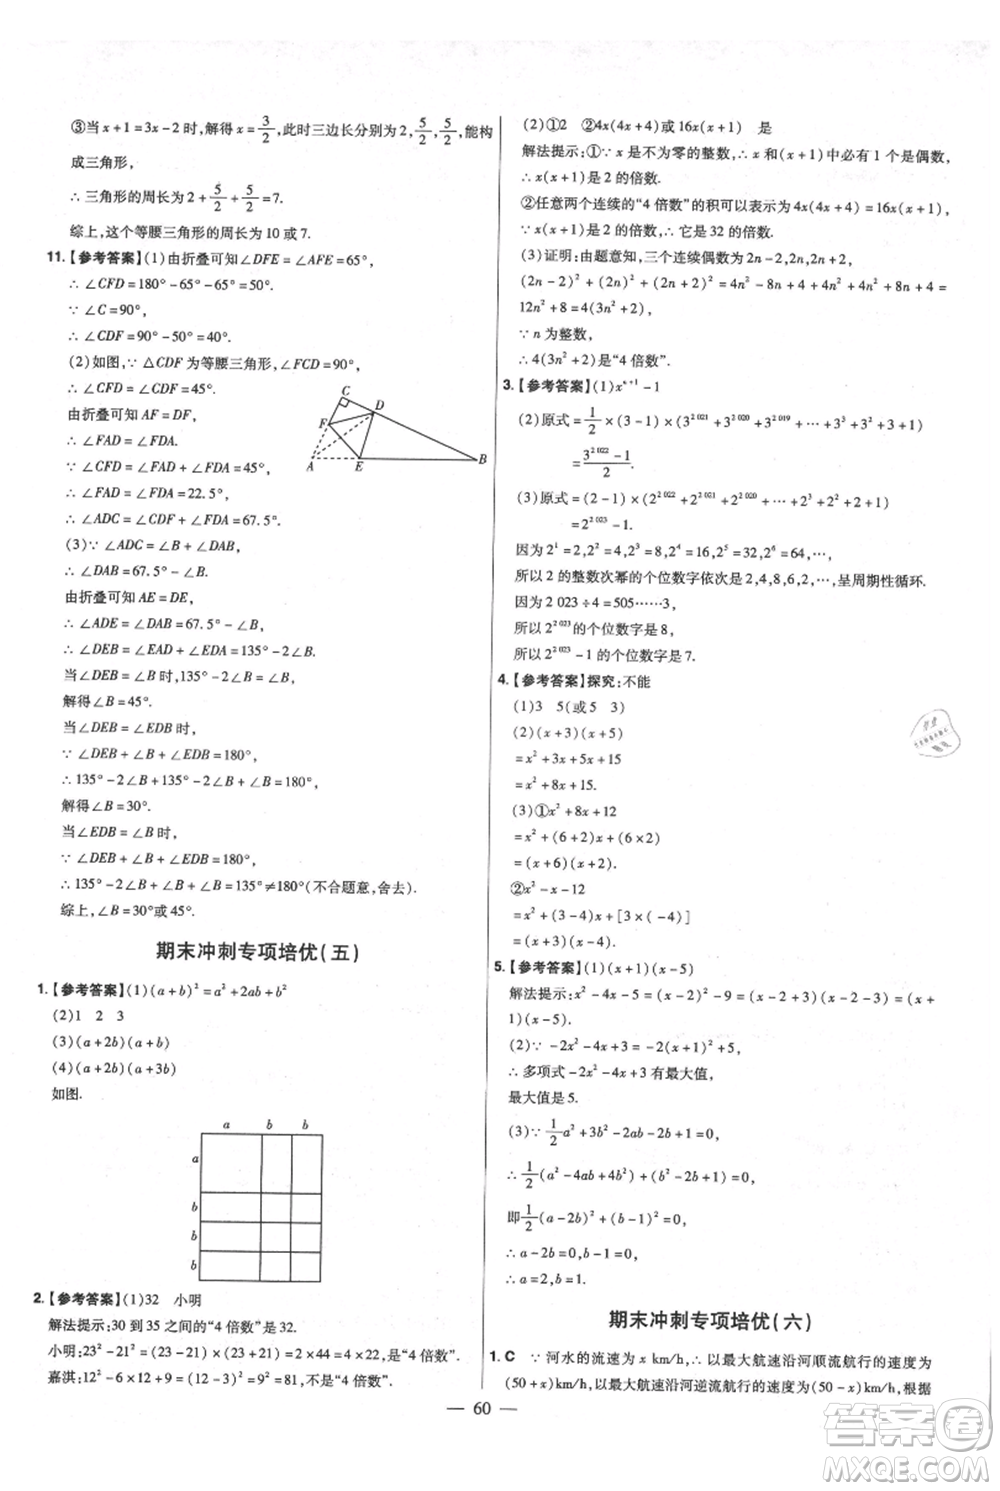 ③当 x+1=3x-2 时,解得 x=3/2,此时三边长分别为 2,5/2,5/2,能构
成三角形,
∴ 三角形的周长为 2+5/2+5/2=7.
综上,这个等腰三角形的周长为 10 或 7.
11.【参考答案】(1)由折叠可知∠DFE=∠AFE=65°,
∴ ∠CFD=180°-65°-65°=50°.
∵ ∠C=90°,
∴ ∠CDF=90°-50°=40°.
(2)如图,∵ △CDF 为等腰三角形,∠FCD=90°,
∴ ∠CFD=∠CDF=45°.
由折叠可知 AF=DF,
∴ ∠FAD=∠FDA.
∵ ∠FAD+∠FDA=∠CFD=45°,
∴ ∠FAD=∠FDA=22.5°,
∴ ∠ADC=∠CDF+∠FDA=67.5°.
(3)∵ ∠ADC=∠B+∠DAB,
∴ ∠DAB=67.5°-∠B.
由折叠可知 AE=DE,
∴ ∠ADE=∠DAB=67.5°-∠B,
∴ ∠DEB=∠EAD+∠EDA=135°-2∠B.
当∠DEB=∠B 时,135°-2∠B=∠B,
解得∠B=45°.
当∠DEB=∠EDB 时,
∵ ∠DEB+∠EDB+∠B=180°,
∴ 135°-2∠B+135°-2∠B+∠B=180°,
解得∠B=30°.
当∠EDB=∠B 时,
∵ ∠DEB+∠B+∠EDB=180°,
∴ 135°-2∠B+∠B+∠B=135°≠180°(不合题意,舍去).
综上,∠B=30°或 45°.
C
D
F
A
E
B
期末冲刺专项培优(五)
1.【参考答案】(1)(a+b)²=a²+2ab+b²
(2)1 2 3
(3)(a+2b)(a+b)
(4)(a+2b)(a+2b)
如图.
a b b
a
b
b
b
2.【参考答案】(1)32 小明
解法提示:30 到 35 之间的“4 倍数”是 32.
小明:23²-21²=(23-21)×(23+21)=2×44=4×22,是“4 倍数”.
嘉淇:12²-6²=(12-6)×(12+6)=6×18=4×27,不是“4 倍数”.
(2)①2 ②4x(4x+4)或 16x(x+1) 是
解法提示:①∵ x 是不为零的整数,∴ x 和(x+1)中必有 1 个是偶数,
∴ x(x+1)是 2 的倍数.
②任意两个连续的“4 倍数”的积可以表示为 4x(4x+4)=16x(x+1),
∵ x(x+1)是 2 的倍数,∴ 它是 32 的倍数.
(3)证明:由题意知,三个连续偶数为 2n-2,2n,2n+2,
(2n-2)²+(2n)²+(2n+2)²=4n²-8n+4+4n²+4n²+8n+4=
12n²+8=4(3n²+2).
∵ n 为整数,
∴ 4(3n²+2)是“4 倍数”.
3.【参考答案】(1)xⁿ⁺¹-1
(2)原式=1/2×(3-1)×(3²⁰²¹+3²⁰²⁰+3²⁰¹⁹+…+3³+3²+3+1)
=(3²⁰²²-1)/2.
(3)原式=(2-1)×(2²⁰²²+2²⁰²¹+2²⁰²⁰+…+2²+2+1)
=2²⁰²³-1.
因为 2¹=2,2²=4,2³=8,2⁴=16,2⁵=32,2⁶=64,…,
所以 2 的整数次幂的个位数字依次是 2,4,8,6,2,…,呈周期性循环.
因为 2 023÷4=505……3,
所以 2²⁰²³的个位数字是 8,
所以 2²⁰²³-1 的个位数字是 7.
4.【参考答案】探究:不能
(1)3 5(或 5 3)
(2)(x+3)(x+5)
=x²+3x+5x+15
=x²+8x+15.
(3)①x²+8x+12
=x²+(6+2)x+(6×2)
=(x+6)(x+2).
②x²-x-12
=x²+(3-4)x+[3×(-4)]
=(x+3)(x-4).
5.【参考答案】(1)(x+1)(x-5)
解法提示:x²-4x-5=(x-2)²-9=(x-2+3)(x-2-3)=(x+
1)(x-5).
(2)∵ -2x²-4x+3=-2(x+1)²+5,
∴ 多项式-2x²-4x+3 有最大值,
最大值是 5.
(3)∵ 1/2a²+3b²-2ab-2b+1=0,
∴ 1/2(a²-4ab+4b²)+(b²-2b+1)=0,
即1/2(a-2b)²+(b-1)²=0,
∴ a-2b=0,b-1=0,
∴ a=2,b=1.
期末冲刺专项培优(六)
1. C ∵ 河水的流速为 x km/h,∴ 以最大航速沿河顺流航行的速度为
(50+x)km/h,以最大航速沿河逆流航行的速度为(50-x)km/h,根据
— 60 —
答案卷
MXQE.COM